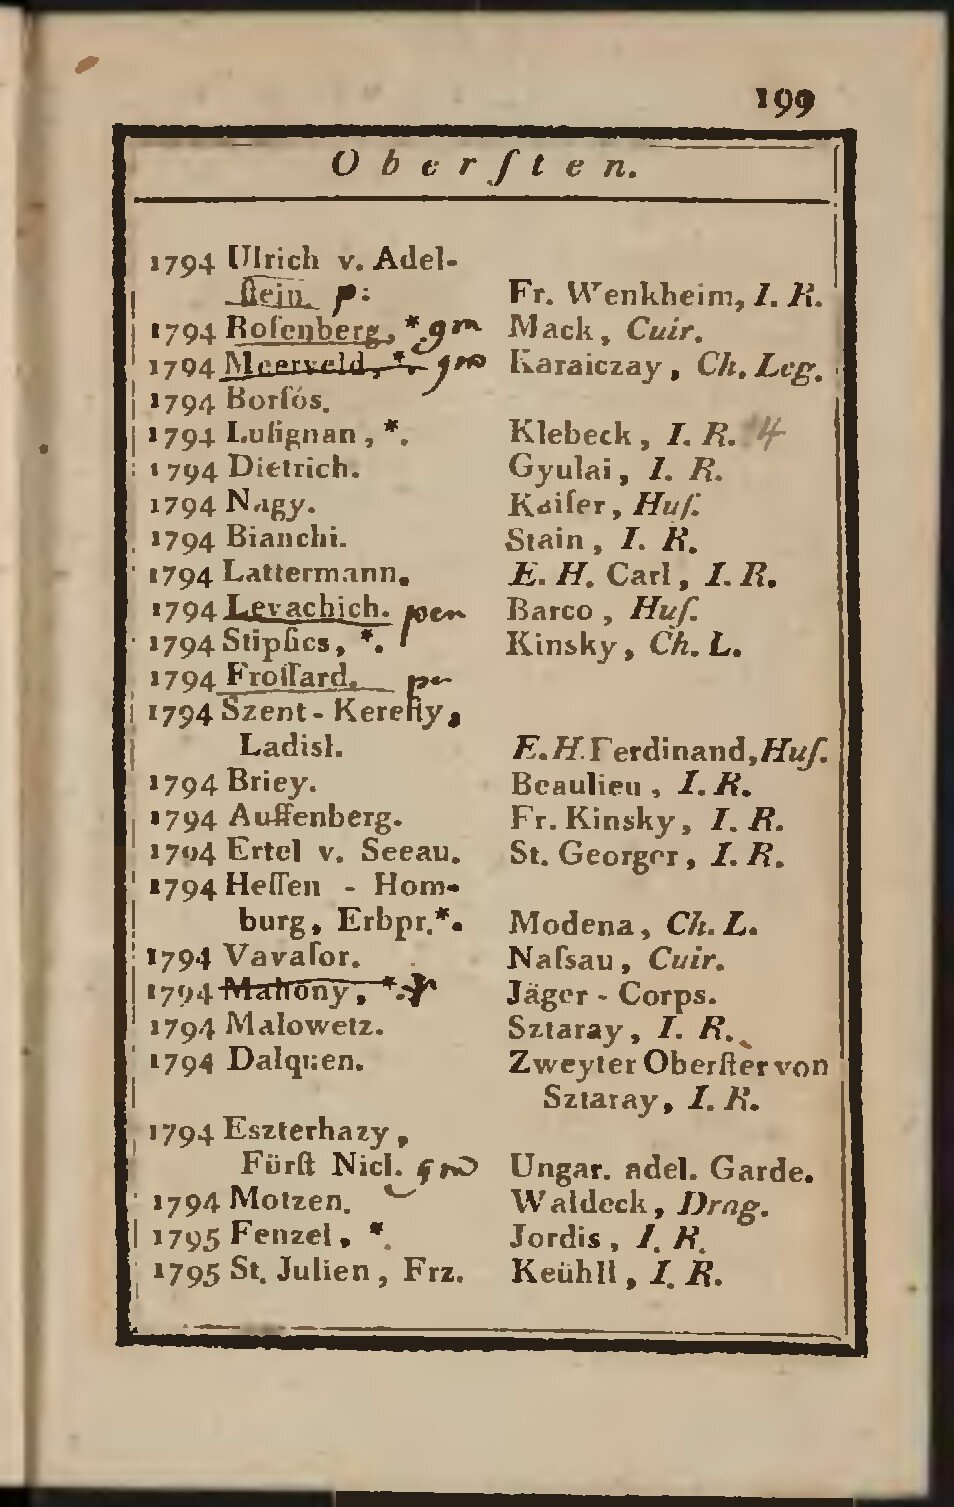 199
Oberſten.
1794 Ulrich v. Adel-
ſtein. p: Fr. Wenkheim, I. R.
1794 Roſenberg, *. gm Mack, Cuir.
1794 Meerveld, *. gm Karaiczay, Ch. Leg.
1794 Borſós.
1794 Luſignan, *. Klebeck, I. R. 4
1794 Dietrich. Gyulai, I. R.
1794 Nagy. Kaiſer, Huſ.
1794 Bianchi. Stain, I. R.
1794 Lattermann. E. H. Carl, I. R.
1794 Levachich. pen Barco, Huſ.
1794 Stipſics, *. Kinsky, Ch. L.
1794 Froſſard. pe
1794 Szent-Kereſty,
Ladisl. E. H. Ferdinand, Huſ.
1794 Briey. Beaulieu, I. R.
1794 Auffenberg. Fr. Kinsky, I. R.
1794 Ertel v. Seeau. St. Georger, I. R.
1794 Heſſen-Hom-
burg, Erbpr. *. Modena, Ch. L.
1794 Vavaſor. Naſsau, Cuir.
1794 Mahony, *. Jäger-Corps.
1794 Malowetz. Sztaray, I. R.
1794 Dalquen. Zweyter Oberſter von
Sztaray, I. R.
1794 Eszterhazy,
Fürſt Nicl. gm Ungar. adel. Garde.
1794 Motzen. Waldeck, Drag.
1795 Fenzel, *. Jordis, I. R.
1795 St. Julien, Frz. Keühll, I. R.